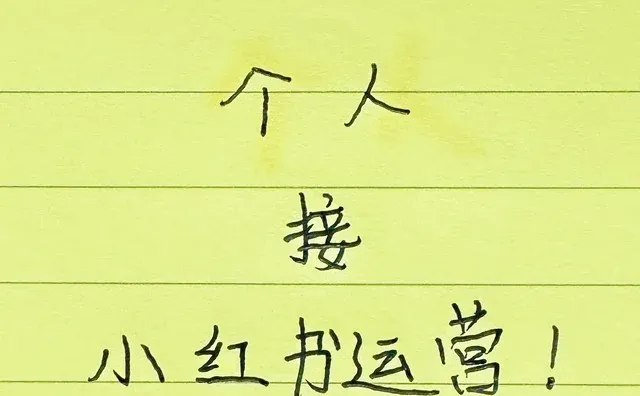 个人
接
小红书运营！